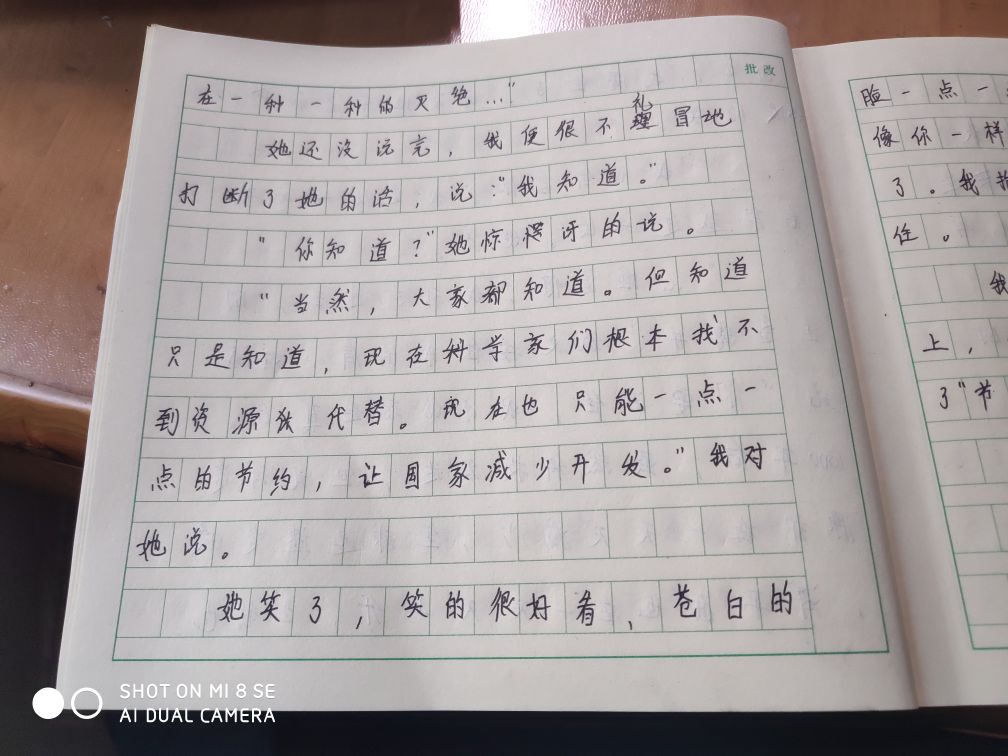 批改
在一种一种的灭绝…"
她还没说完，我便很不礼理冒地
打断了她的话，说："我知道。"
"你知道？"她惊愕讶的说。
"当然，大家都知道。但知道
只是知道，现在科学家们根本找不
到资源来代替。现在也只能一点一
点的节约，让国家减少开发。"我对
她说。
她笑了，笑的很好看，苍白的
脸一点一
像你一样
了。我
住。
我
上，
了"节
SHOT ON MI 8 SE
AI DUAL CAMERA